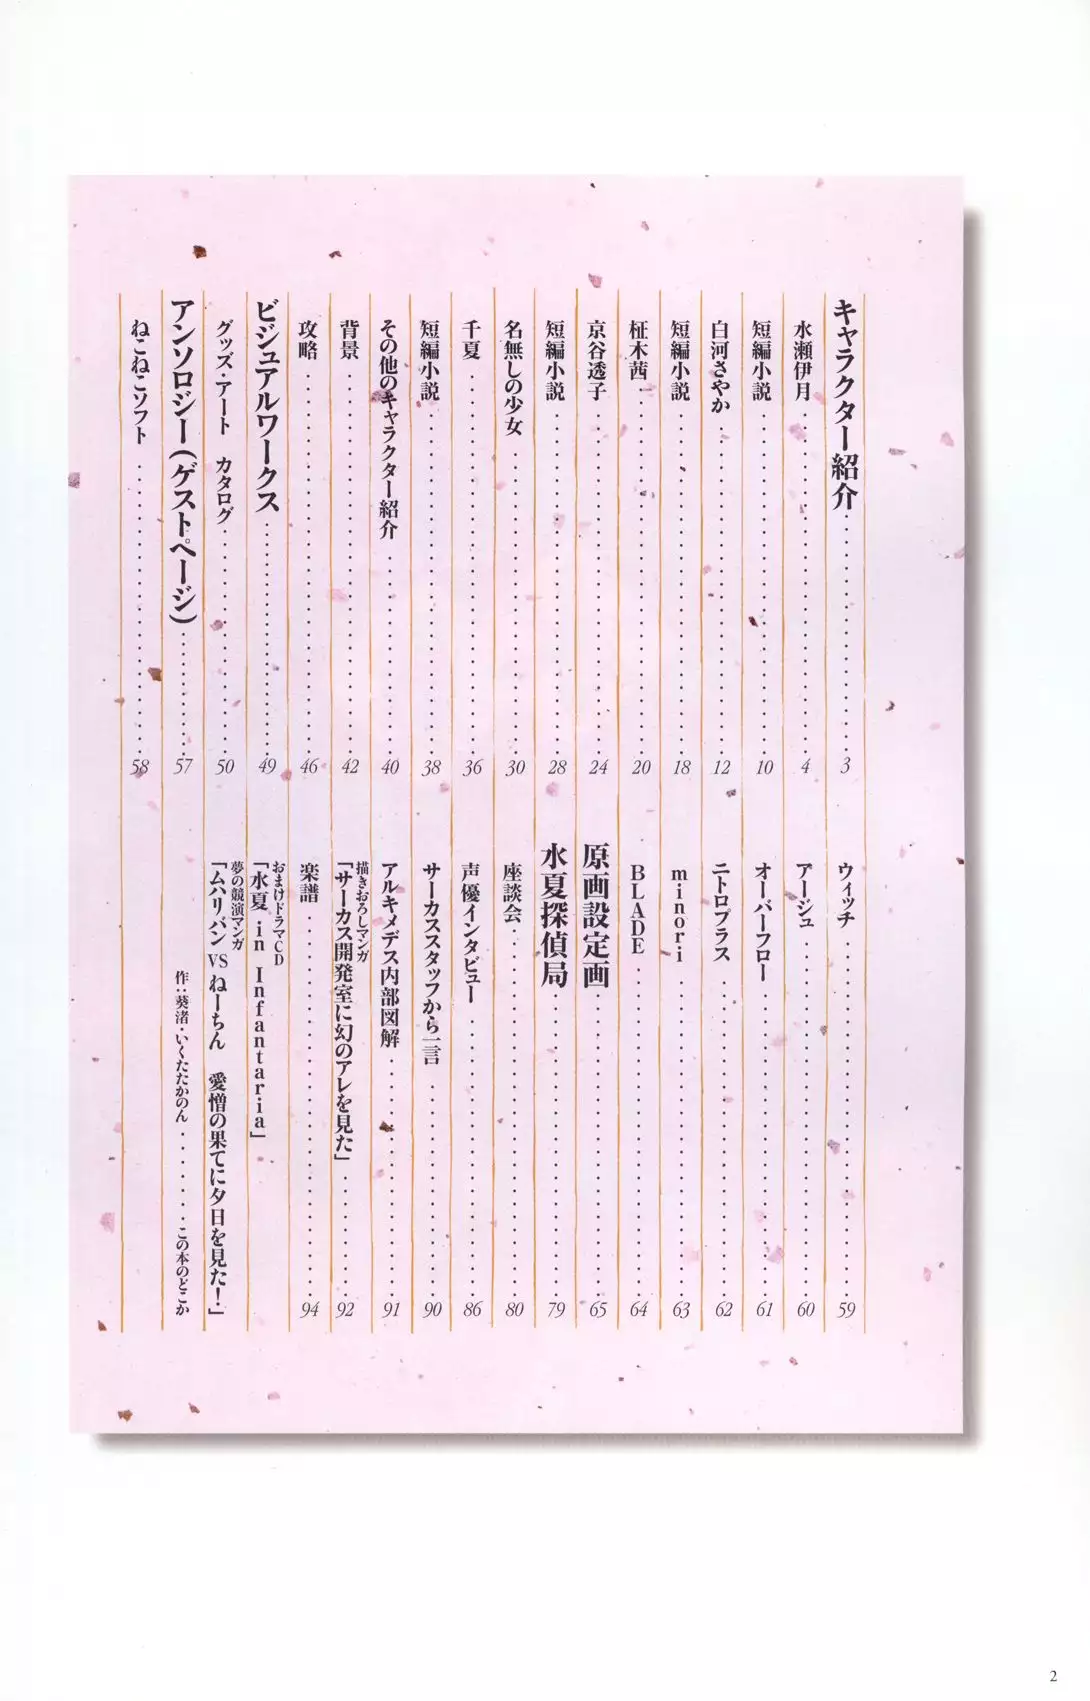 キャラクター紹介・・・・・・・・・・・・・・・・・・3
水瀬伊月・・・・・・・・・・・・・・・・・・4
短編小説・・・・・・・・・・・・・・・・・・10
白河さやか・・・・・・・・・・・・・・・・・・12
短編小説・・・・・・・・・・・・・・・・・・18
柾木茜・・・・・・・・・・・・・・・・・・20
京谷透子・・・・・・・・・・・・・・・・・・24
短編小説・・・・・・・・・・・・・・・・・・28
名無しの少女・・・・・・・・・・・・・・・・・・30
千夏・・・・・・・・・・・・・・・・・・36
短編小説・・・・・・・・・・・・・・・・・・38
その他のキャラクター紹介・・・・・・・・・・・・40
背景・・・・・・・・・・・・・・・・・・42
攻略・・・・・・・・・・・・・・・・・・46
ビジュアルワークス・・・・・・・・・・・・・・・49
グッズ・アート カタログ・・・・・・・・・・・・50
アンソロジー(ゲストページ)・・・・・・・・・57
ねこねこソフト・・・・・・・・・・・・・・・58
ウィッチ・・・・・・・・・・・・・・・・・・59
アージュ・・・・・・・・・・・・・・・・・・60
オーバーフロー・・・・・・・・・・・・・・・61
ニトロプラス・・・・・・・・・・・・・・・62
minori・・・・・・・・・・・・・・・63
BLADE・・・・・・・・・・・・・・・64
原画設定画・・・・・・・・・・・・・・・65
水夏探偵局・・・・・・・・・・・・・・・79
座談会・・・・・・・・・・・・・・・・・・80
声優インタビュー・・・・・・・・・・・・・・・86
サーカススタッフから一言・・・・・・・・・・・・90
アルキメデス内部図解・・・・・・・・・・・・91
描きおろしマンガ
「サーカス開発室に幻のアレを見た」・・・・・・92
楽譜・・・・・・・・・・・・・・・・・・94
おまけドラマCD
「水夏 in Infantaria」
夢の競演マンガ
「ムハリバン VS ねーちん 愛憎の果てに夕日を見た!」
作:葵渚・いくたたかのん・・・・・・・この本のどこか
2